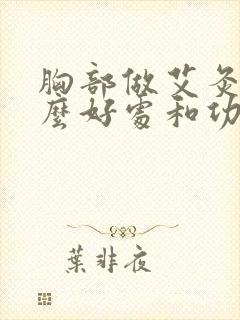 胸部做艾灸
麼好處和功
葉非夜